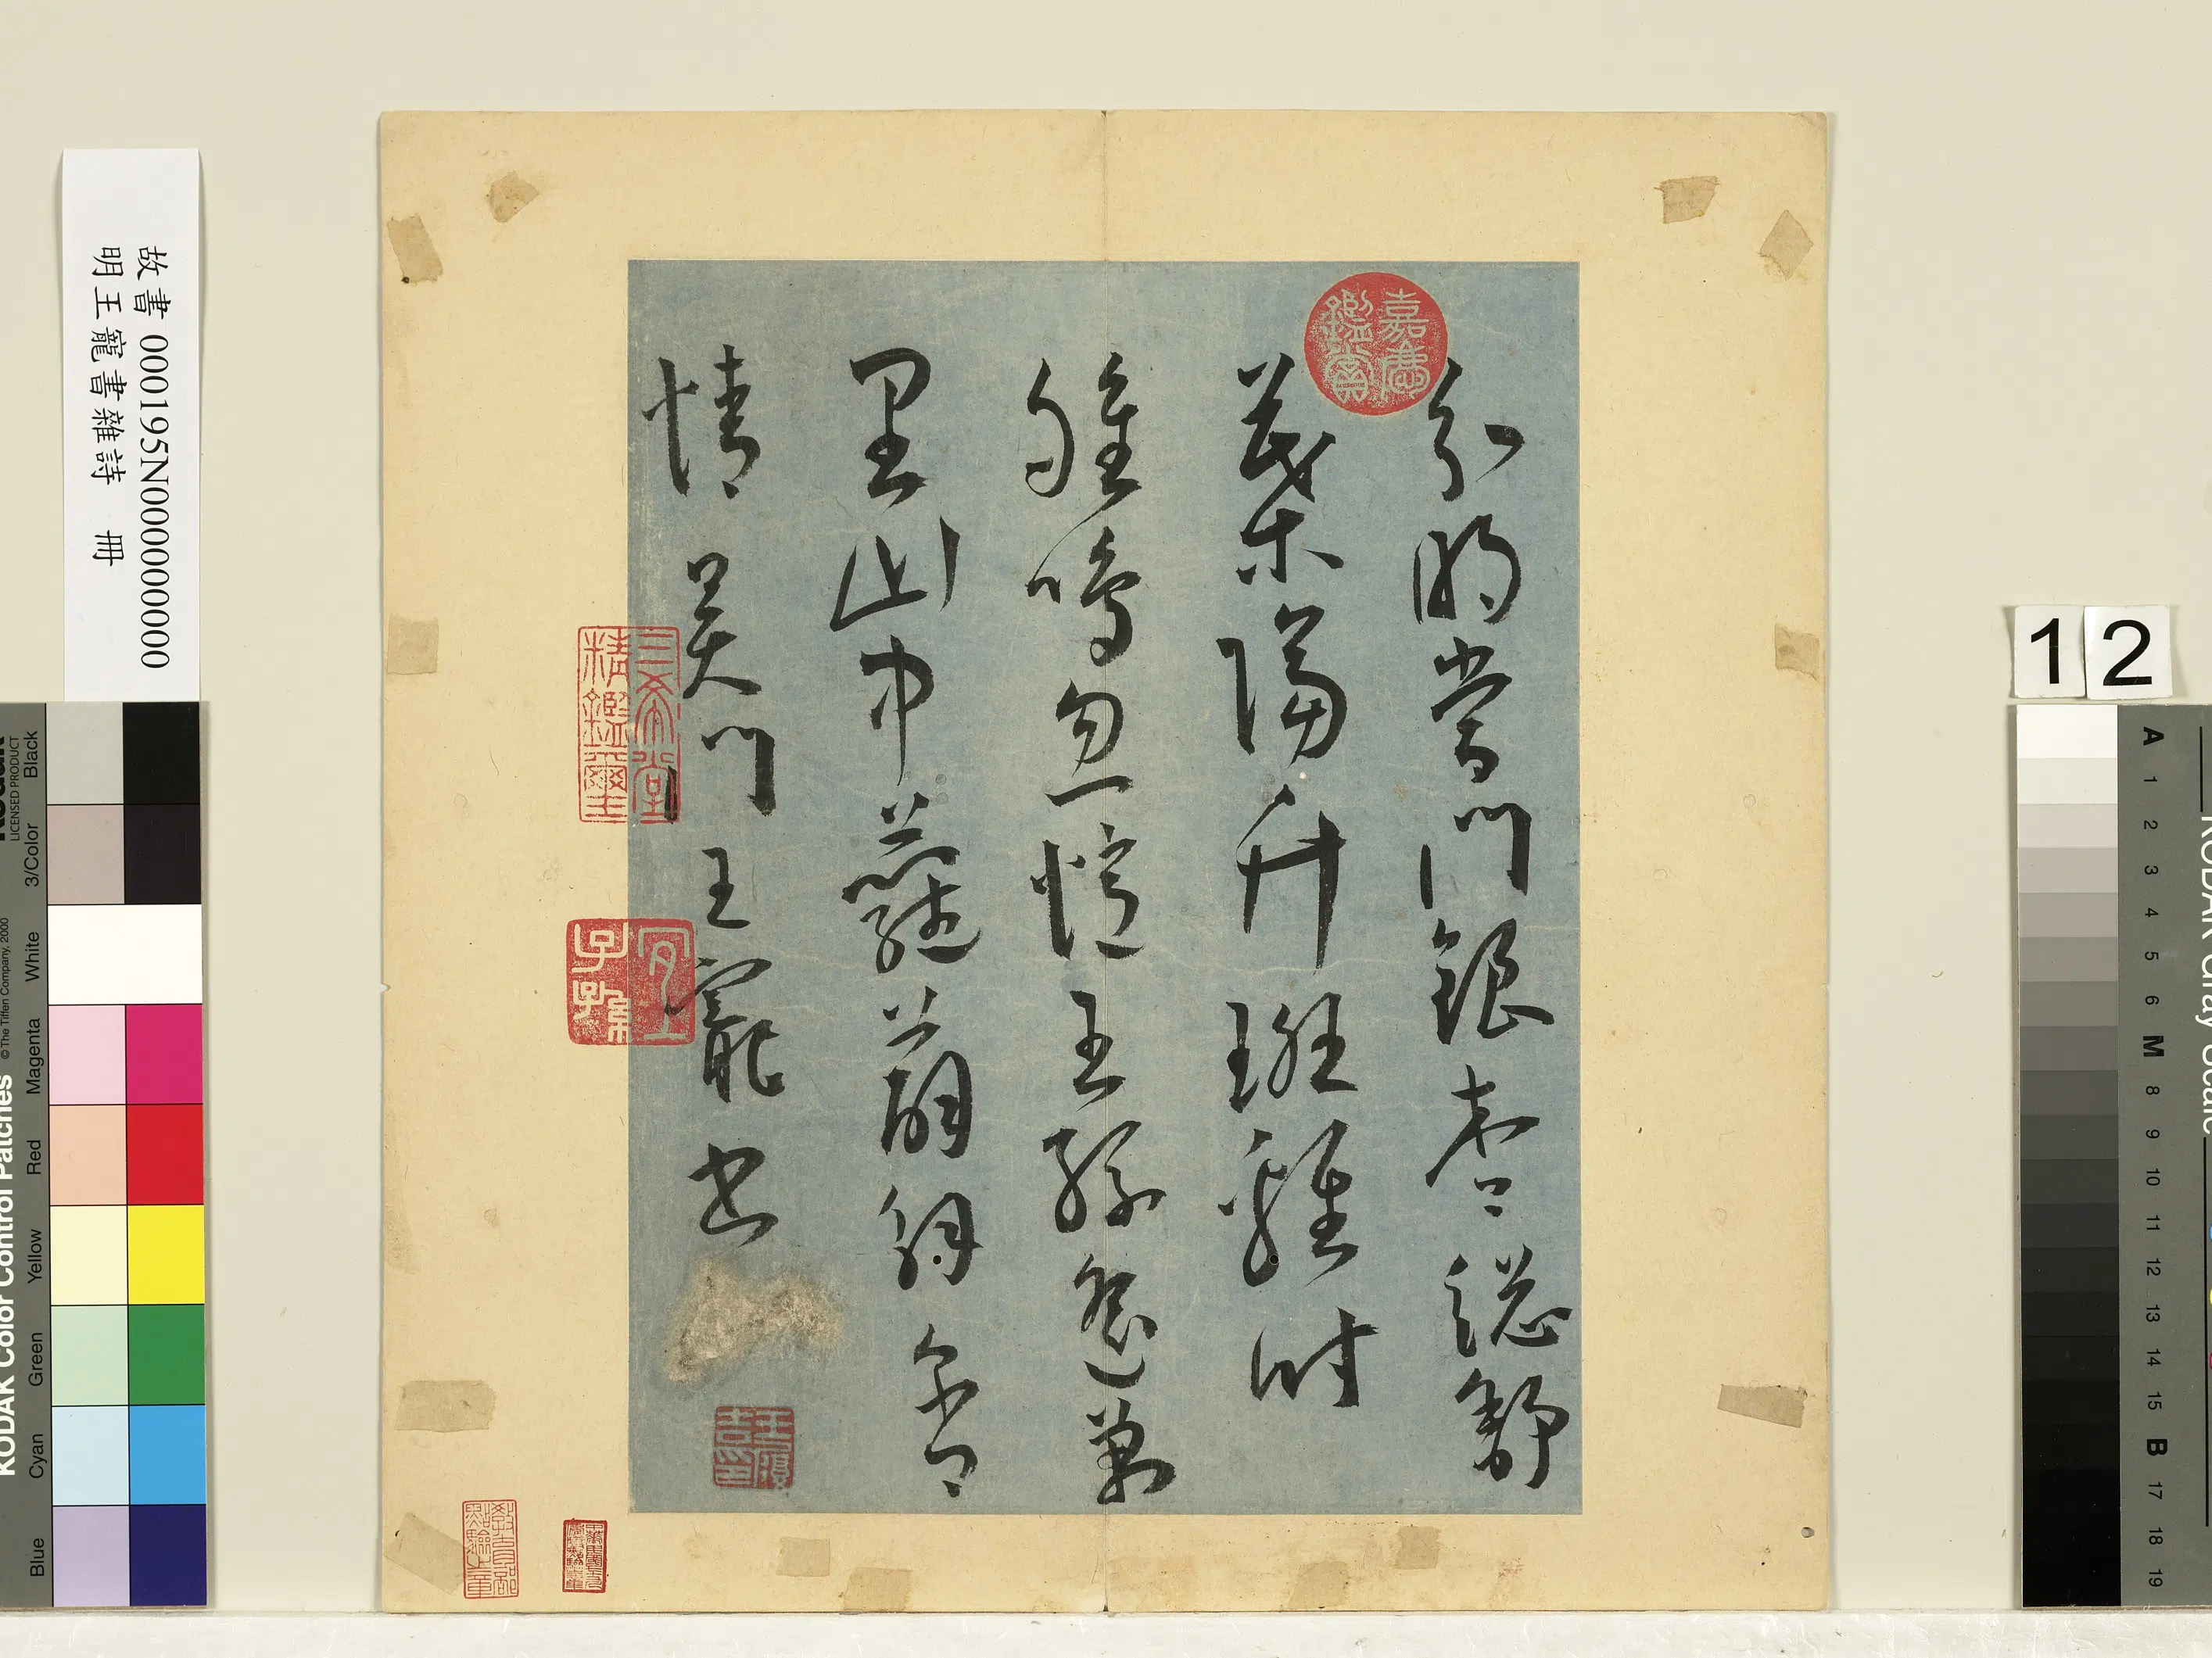 故書 000195N000000000
明王寵書雜詩 冊
嘉慶鑑賞
分明當門銀杏總舒
葉隔班雞時
雊鳴忽憶王孫遠萬
里山中蘿含
情 吳門王寵書
三希堂精鑑璽
宜子孫
王履吉印
12
KODAK Color Control Patches
© The Tiffen Company, 2000
LICENSED PRODUCT
Blue Cyan Green Yellow Red Magenta White 3/Color Black
KODAK Gray Scale
A 1 2 3 4 5 6 M 8 9 10 11 12 13 14 15 B 17 18 19